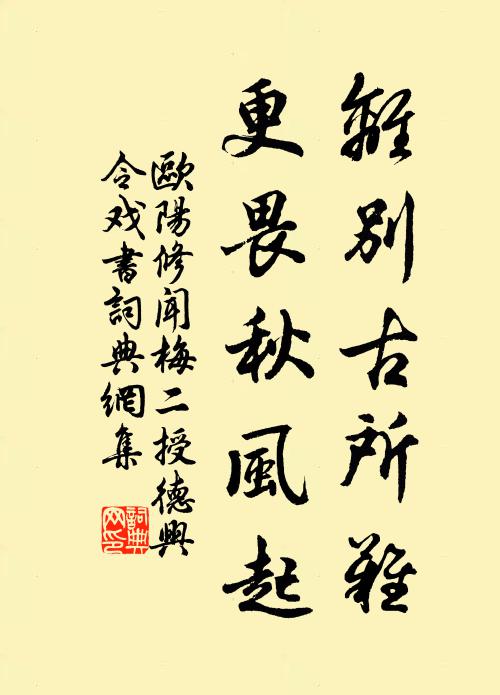 離別古所難
更畏秋風起
歐陽修聞梅二授德興
令戏書詞典網集
詞典
网印